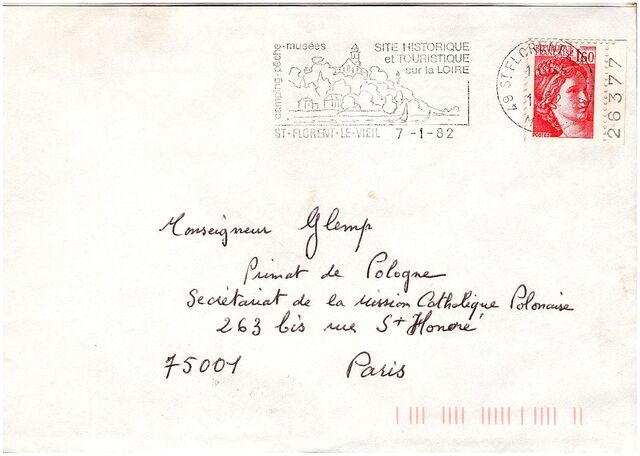 camping-pêche-musées
SITE HISTORIQUE
et TOURISTIQUE
sur la LOIRE
ST-FLORENT-LE-VIEIL 7-1-82
49 ST FLORENT
1,60
POSTES
26377
Monseigneur Glemp
Primat de Pologne
Secrétariat de la Mission Catholique Polonaise
263 bis rue St Honoré
75001 Paris